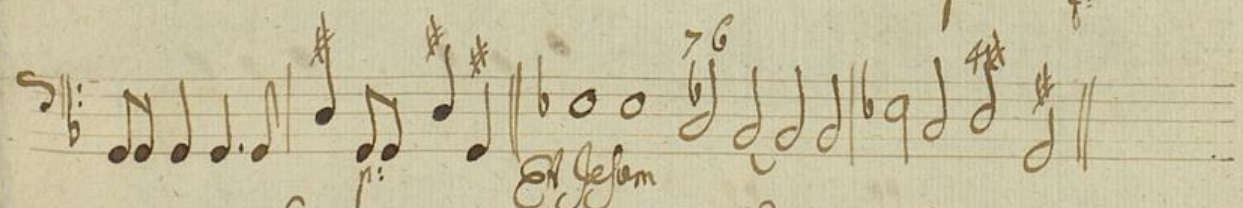 7 6
4
p:
Et Jesum